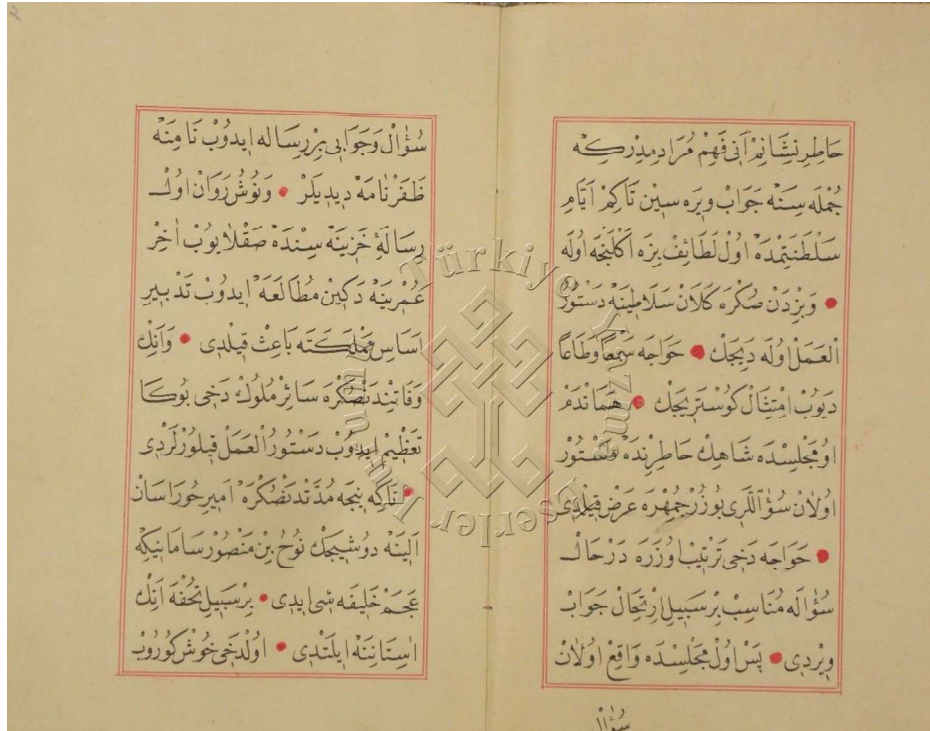 خاطر نشانم آنی فهم مرادمدركه
جمله سنه جواب ویره سین تاکم ایام
سلطنتمده اول لطائف بزه اکلنجه اوله
و بزدن صكره کلان سلاطینه دستور
العمل اوله دیجك خواجه سمعا وطاعا
دیوب امتثال کوستریجك هماندم
او مجلسده شاهك خاطرنده مستور
اولان سؤاللری بوزرجمهره عرض قیلدی
خواجه دخی ترتیب اوزره در حال
سؤاله مناسب بر سبیل ارتجال جواب
ویردی پس اول مجلسده واقع اولان
سؤال
سؤال وجوابی بر رساله ایدوب نامنه
ظفرنامه دیدیلر ونوشروان اول
رساله خزینه سنده صقلایوب اخر
عمرینه دکین مطالعه ایدوب تدبیر
اساس مملکته باعث قیلدی وانك
وفاتندنصكره سائر ملوك دخی بوكا
تعظیم ایدوب دستور العمل قیلورلردی
تاکه نیجه مدتدنصكره امیر خوراسان
الینه دوشیجك نوح بن منصور سامانیکه
عجم خلیفه سی ایدی بر سبیل تحفه انك
استاننه ایلتدی اولدخی خوش کوروب
Türkiye Yazma Eserler Kurumu